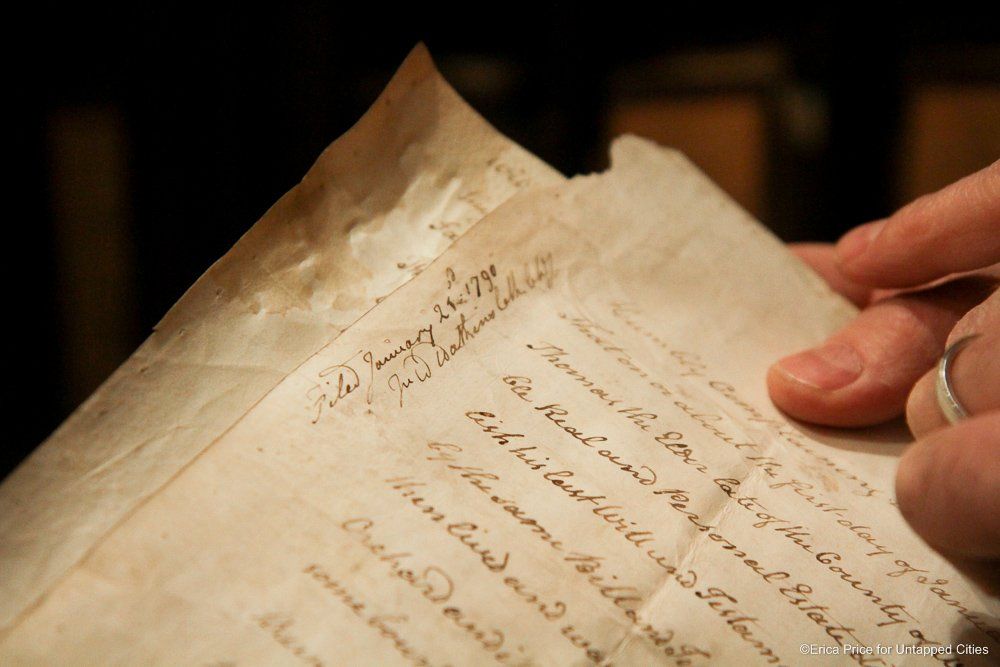 Filed January 23d 1790
Jno D Watkins
Humbly complaining
That on or about the first day of Janu
Thomas the Elder late of the County of
ble Real and Personal Estate
lish his last Will and Testam
by the same Will and Te
then lived and
Orchard and
some
©Erica Price for Untapped Cities